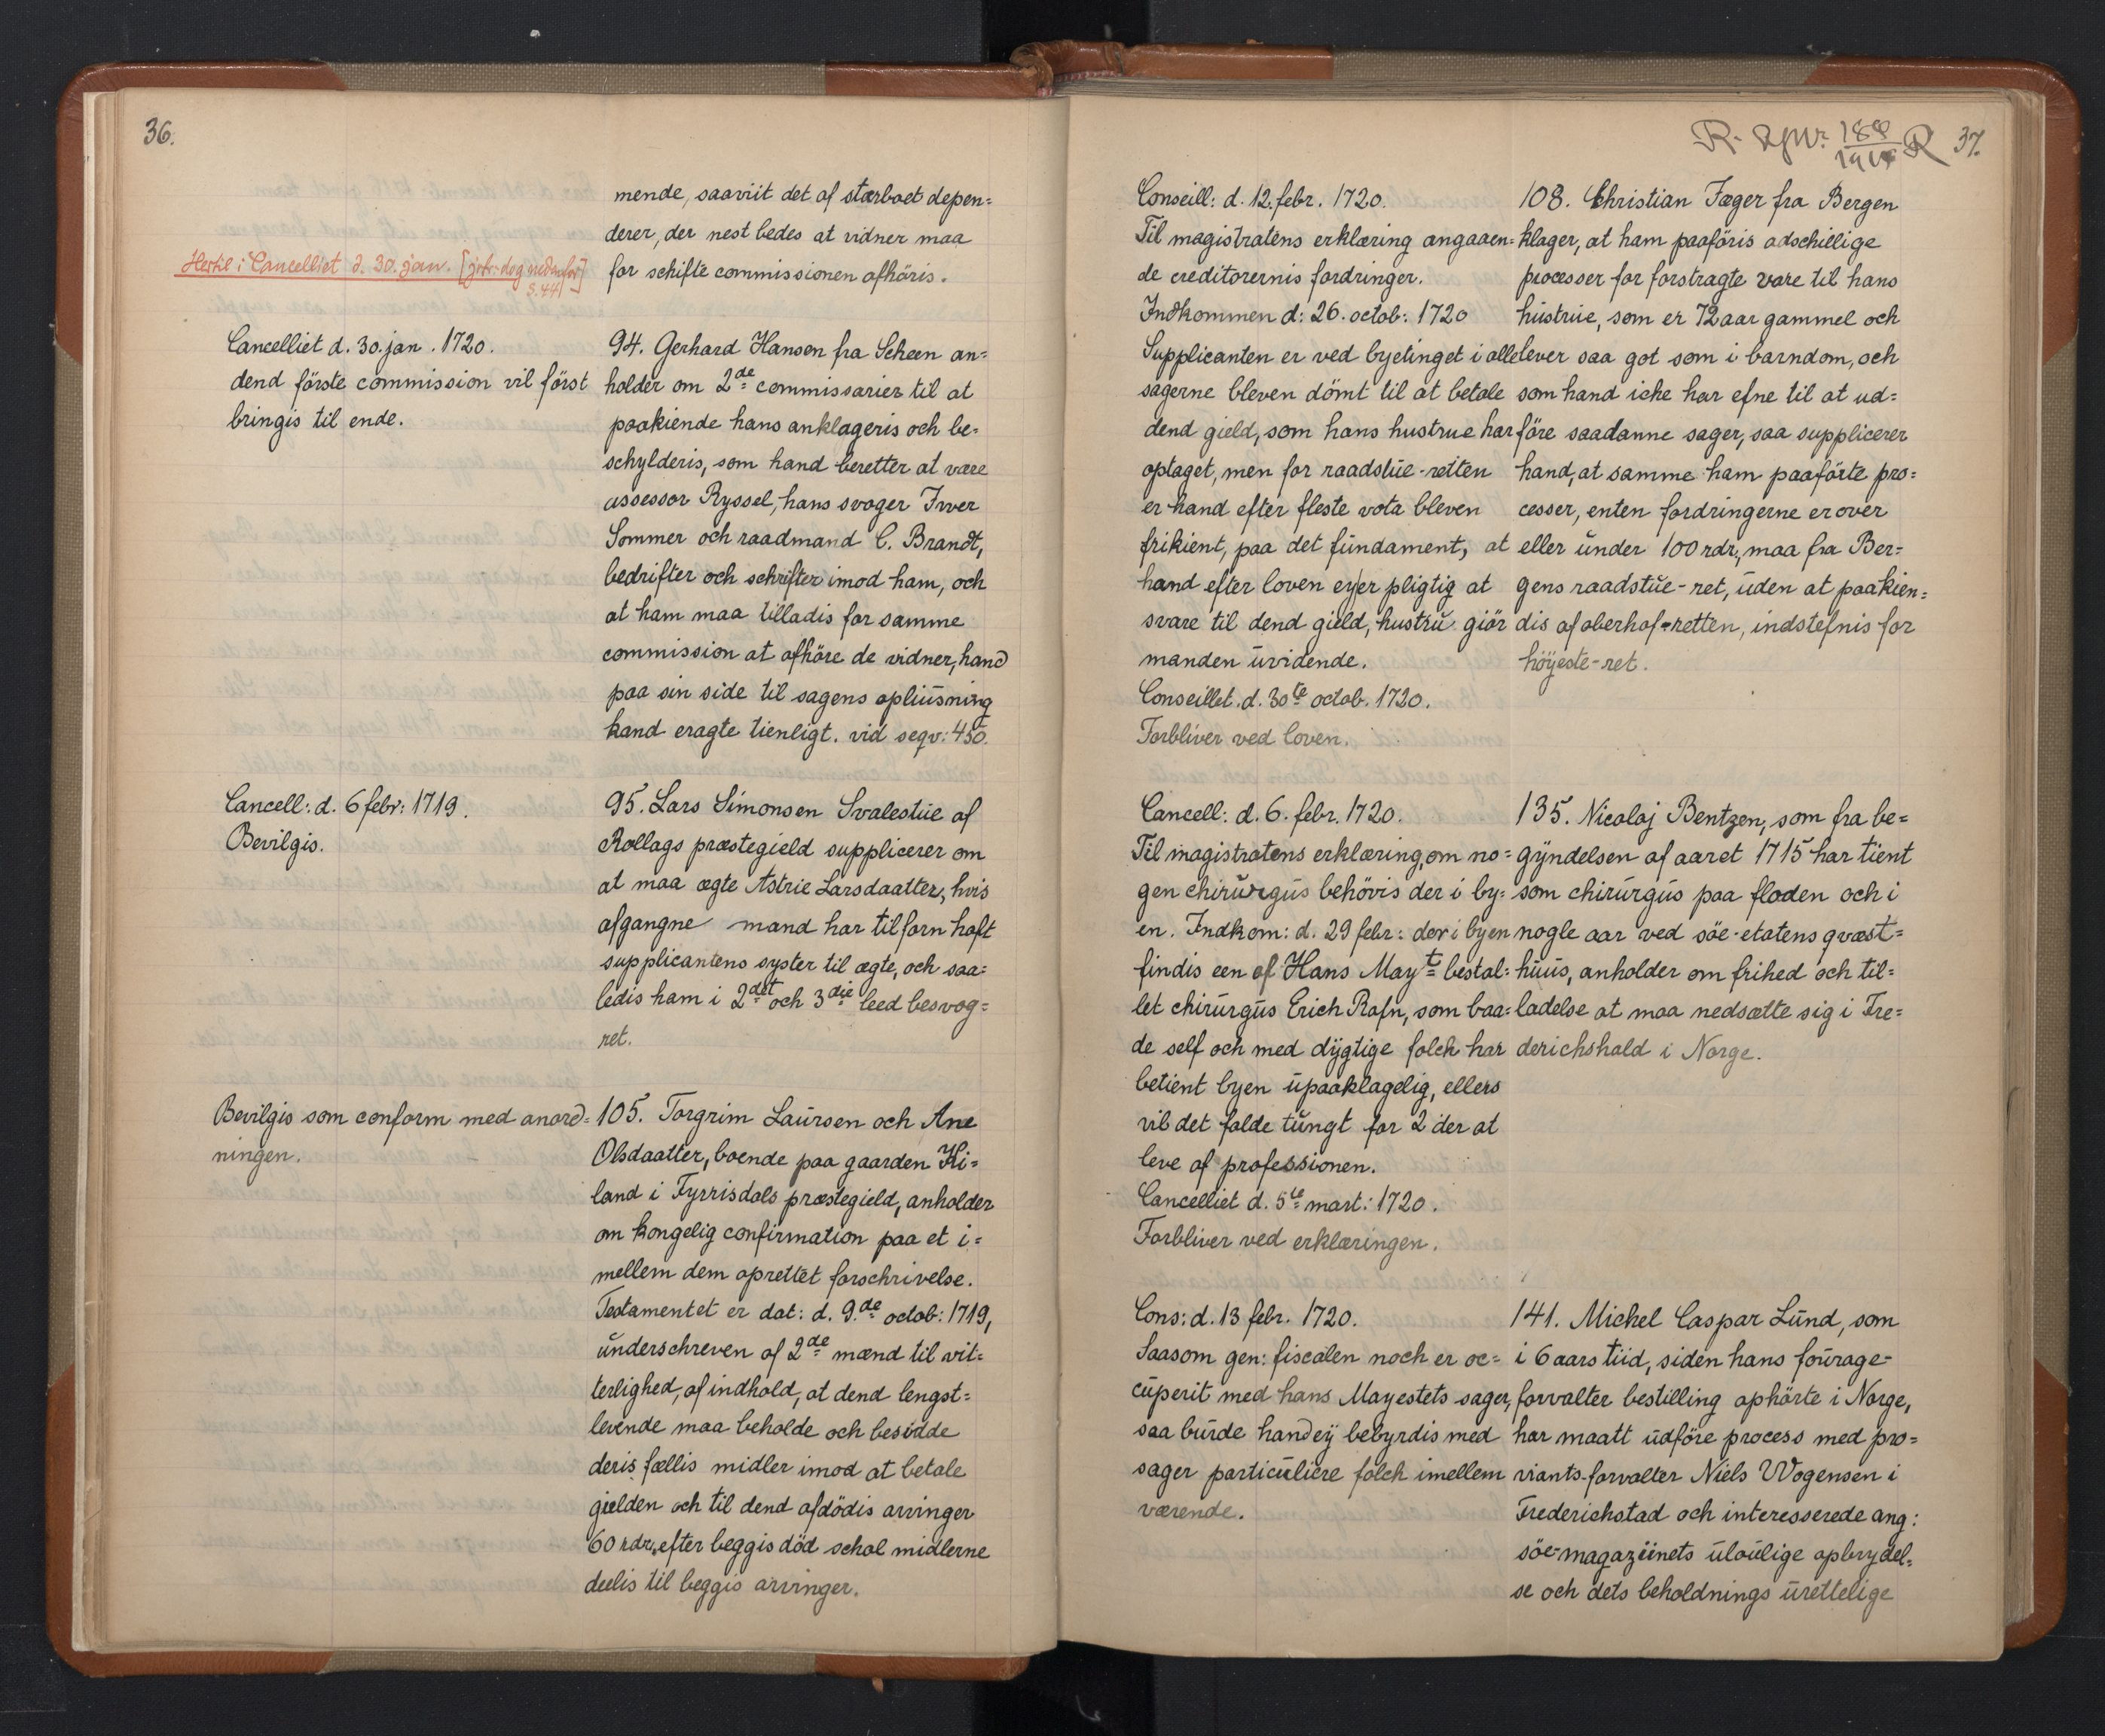 36.
mende, saaviit det af stærboet depen=
derer, der nest bedes at vidner maa
for schifte commissionen afhöris.
Hertil i Cancelliet d. 30. jan. [jvfr. dog nedenfor
S. 44]
Cancelliet d. 30. jan. 1720.
dend förste commission vil först
bringis til ende.
94. Gerhard Hansen fra Scheen an=
holder om 2de commissarier til at
paakiende hans anklageris och be=
schylderis, som hand beretter at være
assessor Ryssel, hans svoger Iwer
Sommer och raadmand C. Brandt,
bedrifter och schrifter imod ham, och
at ham maa tilladis for samme
commission at afhöre de vidner, hand
paa sin side til sagens opliusning
kand eragte tienligt. vid seqv: 450.
Cancell: d. 6 febr: 1719.
Bevilgis.
95. Lars Simonsen Svalestue af
Rollags præstegield supplicerer om
at maa ægte Astrie Larsdaatter, hvis
afgangne mand har tilforn haft
supplicantens syster til ægte, och saa=
ledis ham i 2det och 3die leed besvog=
ret.
Bevilgis som conform med anord=
ningen.
105. Torgrim Laursen och Ane
Olsdaatter, boende paa gaarden Ki=
land i Fyrrisdals præstegield, anholder
om kongelig confirmation paa et i=
mellem dem oprettet forschrivelse.
Testamentet er dat: d. 9.de octob: 1719,
underschreven af 2de mænd til vit=
terlighed, af indhold, at dend lengst=
levende maa beholde och besidde
deris fællis midler imod at betale
gielden och til dend afdödis arvinger
60 rdr, efter beggis död schal midlerne
deelis til beggis arvinger.
37.
Conseill: d. 12. febr. 1720.
Til magistratens erklæring angaaen=
de creditorernis fordringer.
Indkommen d: 26. octob: 1720
Supplicanten er ved byetinget i alle
sagerne bleven dömt til at betale
dend gield, som hans hustrue har
optaget, men for raadstue-retten
er hand efter fleste vota bleven
frikient, paa det fundament, at
hand efter loven ey er pligtig at
svare til dend gield, hustru giör
manden uvidende.
Conseillet. d. 30te octob. 1720.
Forbliver ved loven.
108. Christian Jæger fra Bergen
klager, at ham paaföris adschillige
processer for forstragte vare til hans
hustrue, som er 72 aar gammel och
lever saa got som i barndom, och
som hand icke har efne til at ud=
före saadanne sager, saa supplicerer
hand, at samme ham paaförte pro=
cesser, enten fordringerne er over
eller under 100 rdr, maa fra Ber=
gens raadstue-ret, uden at paakien=
dis af oberhof=retten, indstefnis for
höyeste-ret.
Cancell: d. 6. febr. 1720.
Til magistratens erklæring, om no=
gen chirurgus behövis der i by=
en. Indkom: d. 29 febr: der i byen
findis een af Hans Mayt bestal=
let chirurgus Erich Rafn, som baa=
de self och med dygtige folck har
betient byen upaaklagelig, ellers
vil det falde tungt for 2 der at
leve af professionen.
Cancelliet d. 5te mart: 1720.
Forbliver ved erklæringen.
135. Nicolaj Bentzen, som fra be=
gyndelsen af aaret 1715 har tient
som chirurgus paa floden och i
nogle aar ved söe-etatens qvæst=
huus, anholder om frihed och til=
ladelse at maa nedsætte sig i Fre=
derichshald i Norge.
Cons: d. 13 febr. 1720.
Saasom gen: fiscalen noch er oc=
cuperit med hans Mayestets sager,
saa burde hand ey bebyrdis med
sager particuliere folck imellem
værende.
141. Michel Caspar Lund, som
i 6 aars tiid, siden hans fourage-
forvalter bestilling ophörte i Norge,
har maatt udföre process med pro=
viants-forvalter Niels Wogensen i
Frederichstad och interesserede ang:
söe-magaziinets ulovlige opbrydel=
se och dets beholdnings urettelige